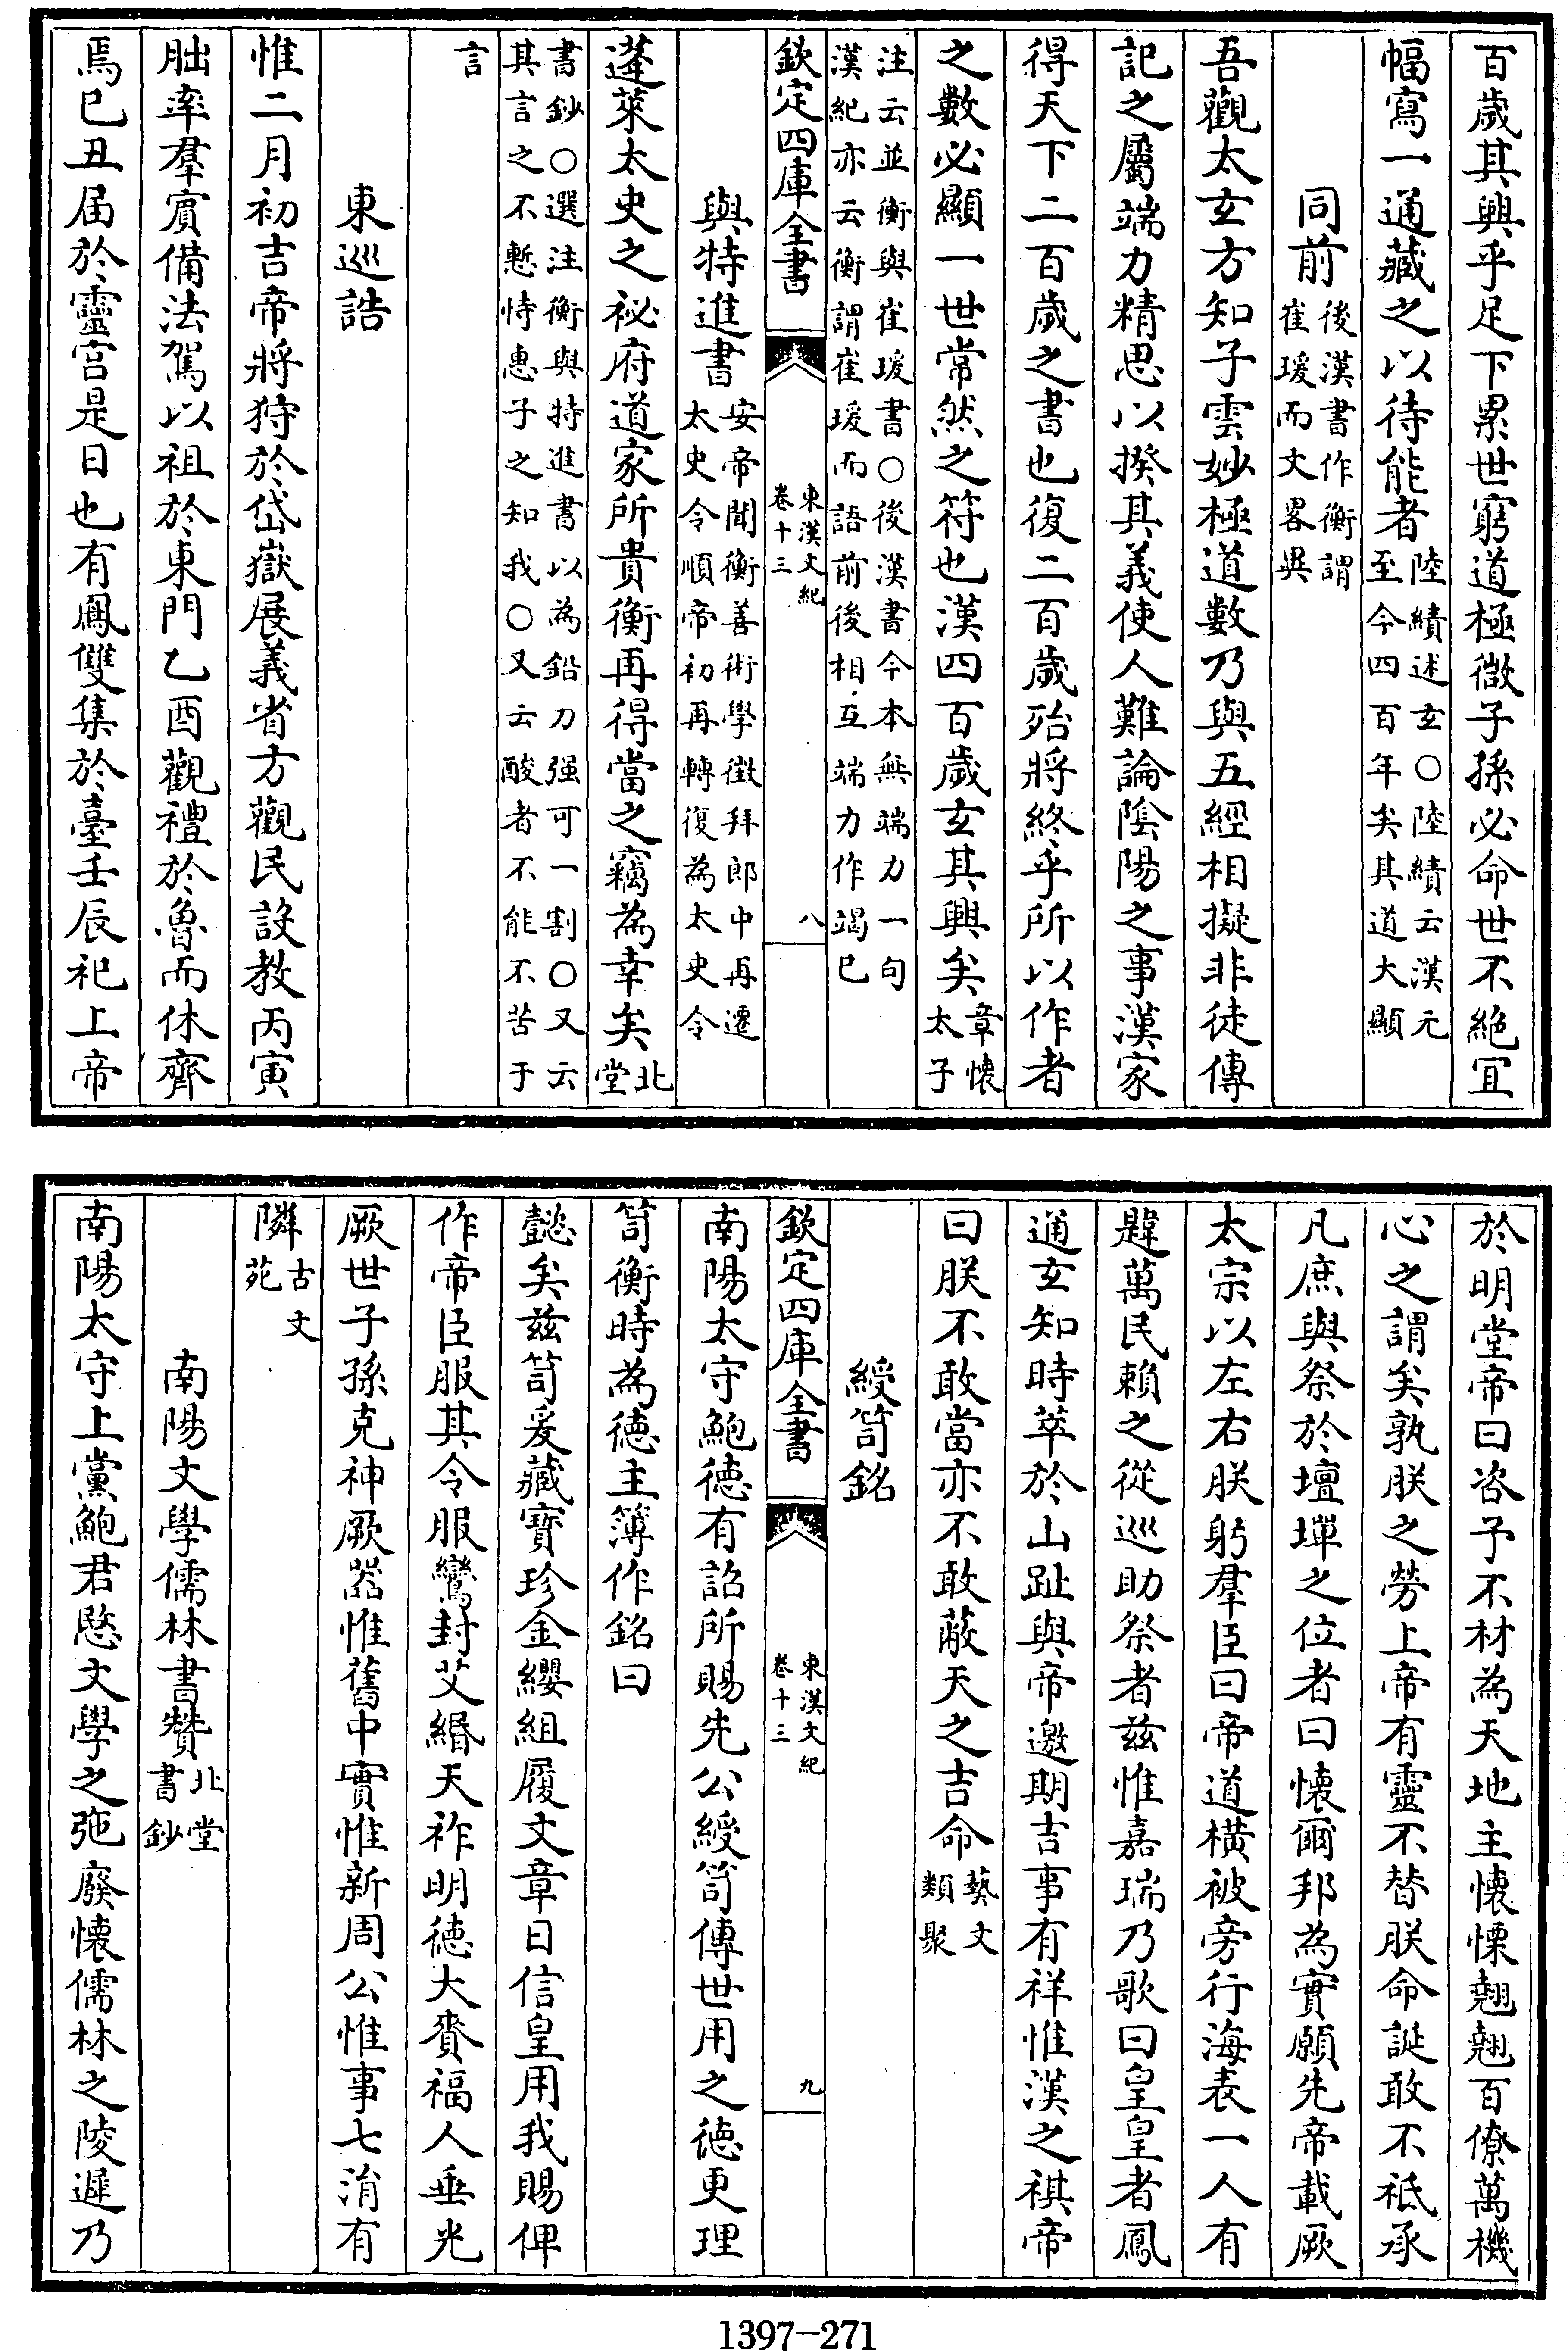 百歲其興乎足下累世窮道極微子孫必命世不絶宜
幅寫一通藏之以待能者陸績述玄○陸績云漢元至今四百年矣其道大顯
同前後漢書作衡謂崔瑗而文畧異
吾觀太玄方知子雲妙極道數乃與五經相擬非徒傳
記之屬端力精思以揆其義使人難論陰陽之事漢家
得天下二百歲之書也復二百歲殆將終乎所以作者
之數必顯一世常然之符也漢四百歲玄其興矣章懷太子
注云並衡與崔瑗書○後漢書今本無端力一句漢紀亦云衡謂崔瑗而語前後相互端力作竭已
欽定四庫全書
東漢文紀
卷十三
八
與特進書安帝聞衡善術學徵拜郎中再遷太史令順帝初再轉復為太史令
蓬萊太史之祕府道家所貴衡再得當之竊為幸矣北堂
書鈔○選注衡與特進書以為鉛刀强可一割○又云其言之不慙恃惠子之知我○又云酸者不能不苦于
言
東巡誥
惟二月初吉帝將狩於岱嶽展義省方觀民設教丙寅
朏率羣賔備法駕以祖於東門乙酉觀禮於魯而休齊
焉已丑届於靈宫是日也有鳳雙集於臺壬辰祀上帝
於明堂帝曰咨予不材為天地主懷慄翹翹百僚萬機
心之謂矣孰朕之勞上帝有靈不替朕命誕敢不祗承
凡庶與祭於壇墠之位者曰懷爾邦為實願先帝載厥
太宗以左右朕躬羣臣曰帝道横被旁行海表一人有
韙萬民賴之從巡助祭者兹惟嘉瑞乃歌曰皇皇者鳳
通玄知時萃於山趾與帝邀期吉事有祥惟漢之祺帝
曰朕不敢當亦不敢蔽天之吉命藝文類聚
綬笥銘
欽定四庫全書
東漢文紀
卷十三
九
南陽太守鮑德有詔所賜先公綬笥傳世用之德更理
笥衡時為德主簿作銘曰
懿矣兹笥爰藏寶珍金纓組履文章日信皇用我賜俾
作帝臣服其令服鸞封艾緡天祚明德大賚福人垂光
厥世子孫克神厥器惟舊中實惟新周公惟事七涓有
隣古文苑
南陽文學儒林書贊北堂書鈔
南陽太守上黨鮑君愍文學之弛廢懷儒林之陵遲乃
1397-271